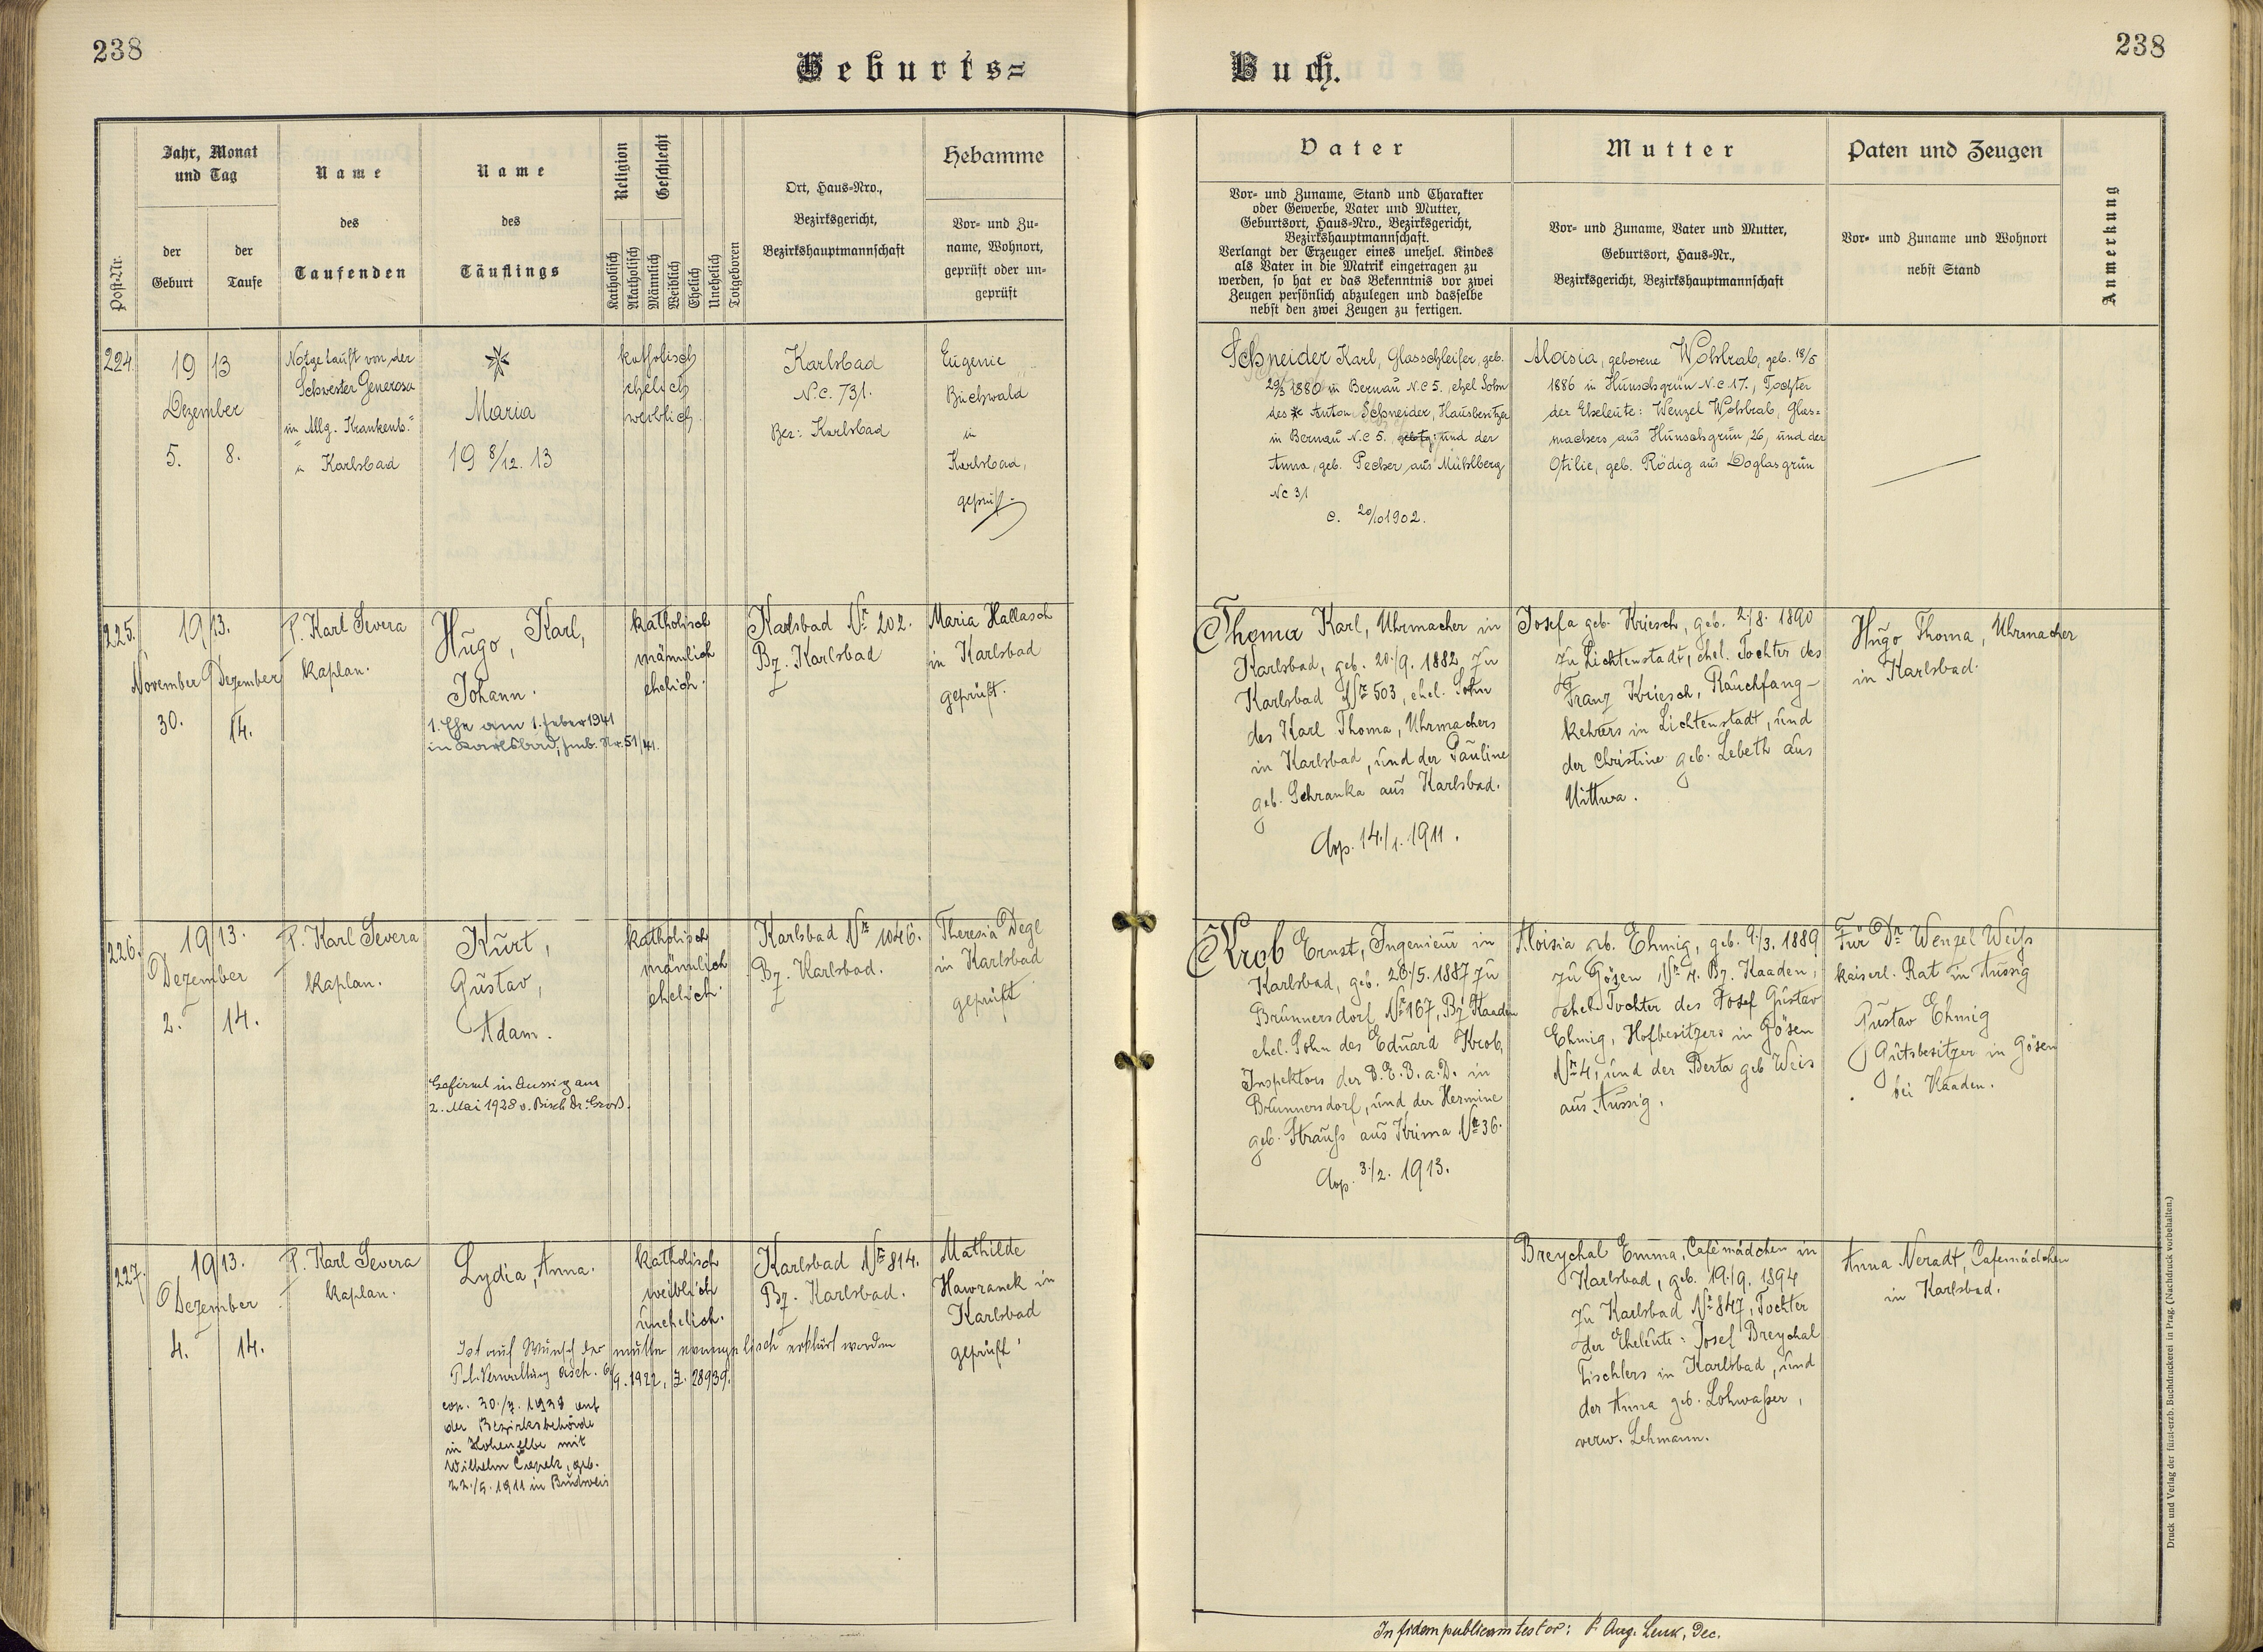 238
Geburts=
Buch.
238
Post-Nr.
Jahr, Monat
und Tag
der
Geburt
der
Taufe
Name
des
Taufenden
Name
des
Täuflings
Religion
Katholisch
Akatholisch
Geschlecht
Männlich
Weiblich
Ehelich
Unehelich
Totgeboren
Ort, Haus-Nro.,
Bezirksgericht,
Bezirkshauptmannschaft
Hebamme
Vor- und Zu-
name, Wohnort,
geprüft oder un-
geprüft
Vater
Vor- und Zuname, Stand und Charakter
oder Gewerbe, Vater und Mutter,
Geburtsort, Haus-Nro., Bezirksgericht,
Bezirkshauptmannschaft.
Verlangt der Erzeuger eines unehel. Kindes
als Vater in die Matrik eingetragen zu
werden, so hat er das Bekenntnis vor zwei
Zeugen persönlich abzulegen und dasselbe
nebst den zwei Zeugen zu fertigen.
Mutter
Vor- und Zuname, Vater und Mutter,
Geburtsort, Haus-Nr.,
Bezirksgericht, Bezirkshauptmannschaft
Paten und Zeugen
Vor- und Zuname und Wohnort
nebst Stand
Anmerkung
224.
19 13
Dezember
5. 8.
Notgetauft von der
Schwester Generosa
im Allg. Krankenh.
in Karlsbad
Maria
19 8/12. 13
katholisch
ehelich
weiblich
Karlsbad
N.C. 731.
Bez: Karlsbad
Eugenie
Buchwald
in
Karlsbad,
geprüft
Schneider Karl, Glasschleifer, geb.
29/3 1880 in Bernau N.C 5. ehel Sohn
des Anton Schneider, Hausbesitzer
in Bernau N.C 5. und der
Anna, geb. Pecher aus Mühlberg
Nc 31
c. 20/10 1902.
Aloisia, geborene Wohlrab, geb. 18/5
1886 in Hunschgrün N.C 17., Tochter
der Eheleute: Wenzel Wohlrab, Glas=
machers aus Hunschgrün, 26, und der
Otilie, geb. Rödig aus Doglasgrün
225.
19 13.
November Dezember
30. 14.
P. Karl Severa
Kaplan.
Hugo, Karl,
Johann.
1. Ehe am 1. Feber 1941
in Karlsbad, Fmb. Nr. 51/41.
katholisch
männlich
ehelich.
Karlsbad Nr 202.
Bz. Karlsbad
Maria Hallasch
in Karlsbad
geprüft.
Thoma Karl, Uhrmacher in
Karlsbad, geb. 20./9. 1882 zu
Karlsbad Nr 503, ehel. Sohn
des Karl Thoma, Uhrmachers
in Karlsbad, und der Pauline
geb. Schranka aus Karlsbad.
Cop. 14./1. 1911.
Josefa geb. Kriesch, geb. 2./8. 1890
zu Lichtenstadt, ehel. Tochter des
Franz Kriesch, Rauchfang-
kehrers in Lichtenstadt, und
der Christine geb. Lebeth aus
Uittwa.
Hugo Thoma, Uhrmacher
in Karlsbad.
226.
19 13.
Dezember
2. 14.
P. Karl Severa
Kaplan.
Kurt,
Gustav,
Adam.
Gefirmt in Aussig am
2. Mai 1928 v. Bisch Dr. Groß.
katholisch
männlich
ehelich.
Karlsbad Nr 1046.
Bz. Karlsbad.
Theresia Degl
in Karlsbad
geprüft
Krob Ernst, Ingenieur in
Karlsbad, geb. 26./5. 1887 zu
Brunnersdorf Nr 167, Bz. Kaaden
ehel. Sohn des Eduard Krob,
Inspektors der B.E.B. a.D. in
Brunnersdorf, und der Hermine
geb. Strauss aus Krima Nr 36.
Cop. 3./2. 1913.
Aloisia geb. Ehmig, geb. 9./3. 1889
zu Gösen Nr 4. Bz. Kaaden,
ehel. Tochter des Josef Gustav
Ehmig, Hofbesitzers in Gösen
Nr 4, und der Berta geb Weis
aus Aussig.
Für Dr Wenzel Weiss
kaiserl. Rat in Aussig
Gustav Ehmig
Gutsbesitzer in Gösen
bei Kaaden.
227.
19 13.
Dezember
4. 14.
P. Karl Severa
Kaplan.
Lydia, Anna.
katholisch
weiblich
unehelich.
Ist auf Wunsch der Mutter evangelisch erklärt worden
Pol. Verwaltung Asch. 6/9. 1922, Z. 28939.
cop. 30./7. 1938 auf
der Bezirksbehörde
in Hohenelbe mit
Wilhelm, geb.
22./5. 1911 in Budweis
Karlsbad Nr 814.
Bz. Karlsbad.
Mathilde
Hawranek in
Karlsbad
geprüft
Breychal Emma, Cafémädchen in
Karlsbad, geb. 19./9. 1894
zu Karlsbad Nr 847, Tochter
der Eheleute: Josef Breychal
Tischlers in Karlsbad, und
der Anna geb. Lohwasser,
verw. Lehmann.
Anna Neradt, Cafemädchen
in Karlsbad.
In fidem publicam testor: P. Aug. Lenk, Dec.
Druck und Verlag der fürst-erzb. Buchdruckerei in Prag. (Nachdruck vorbehalten.)